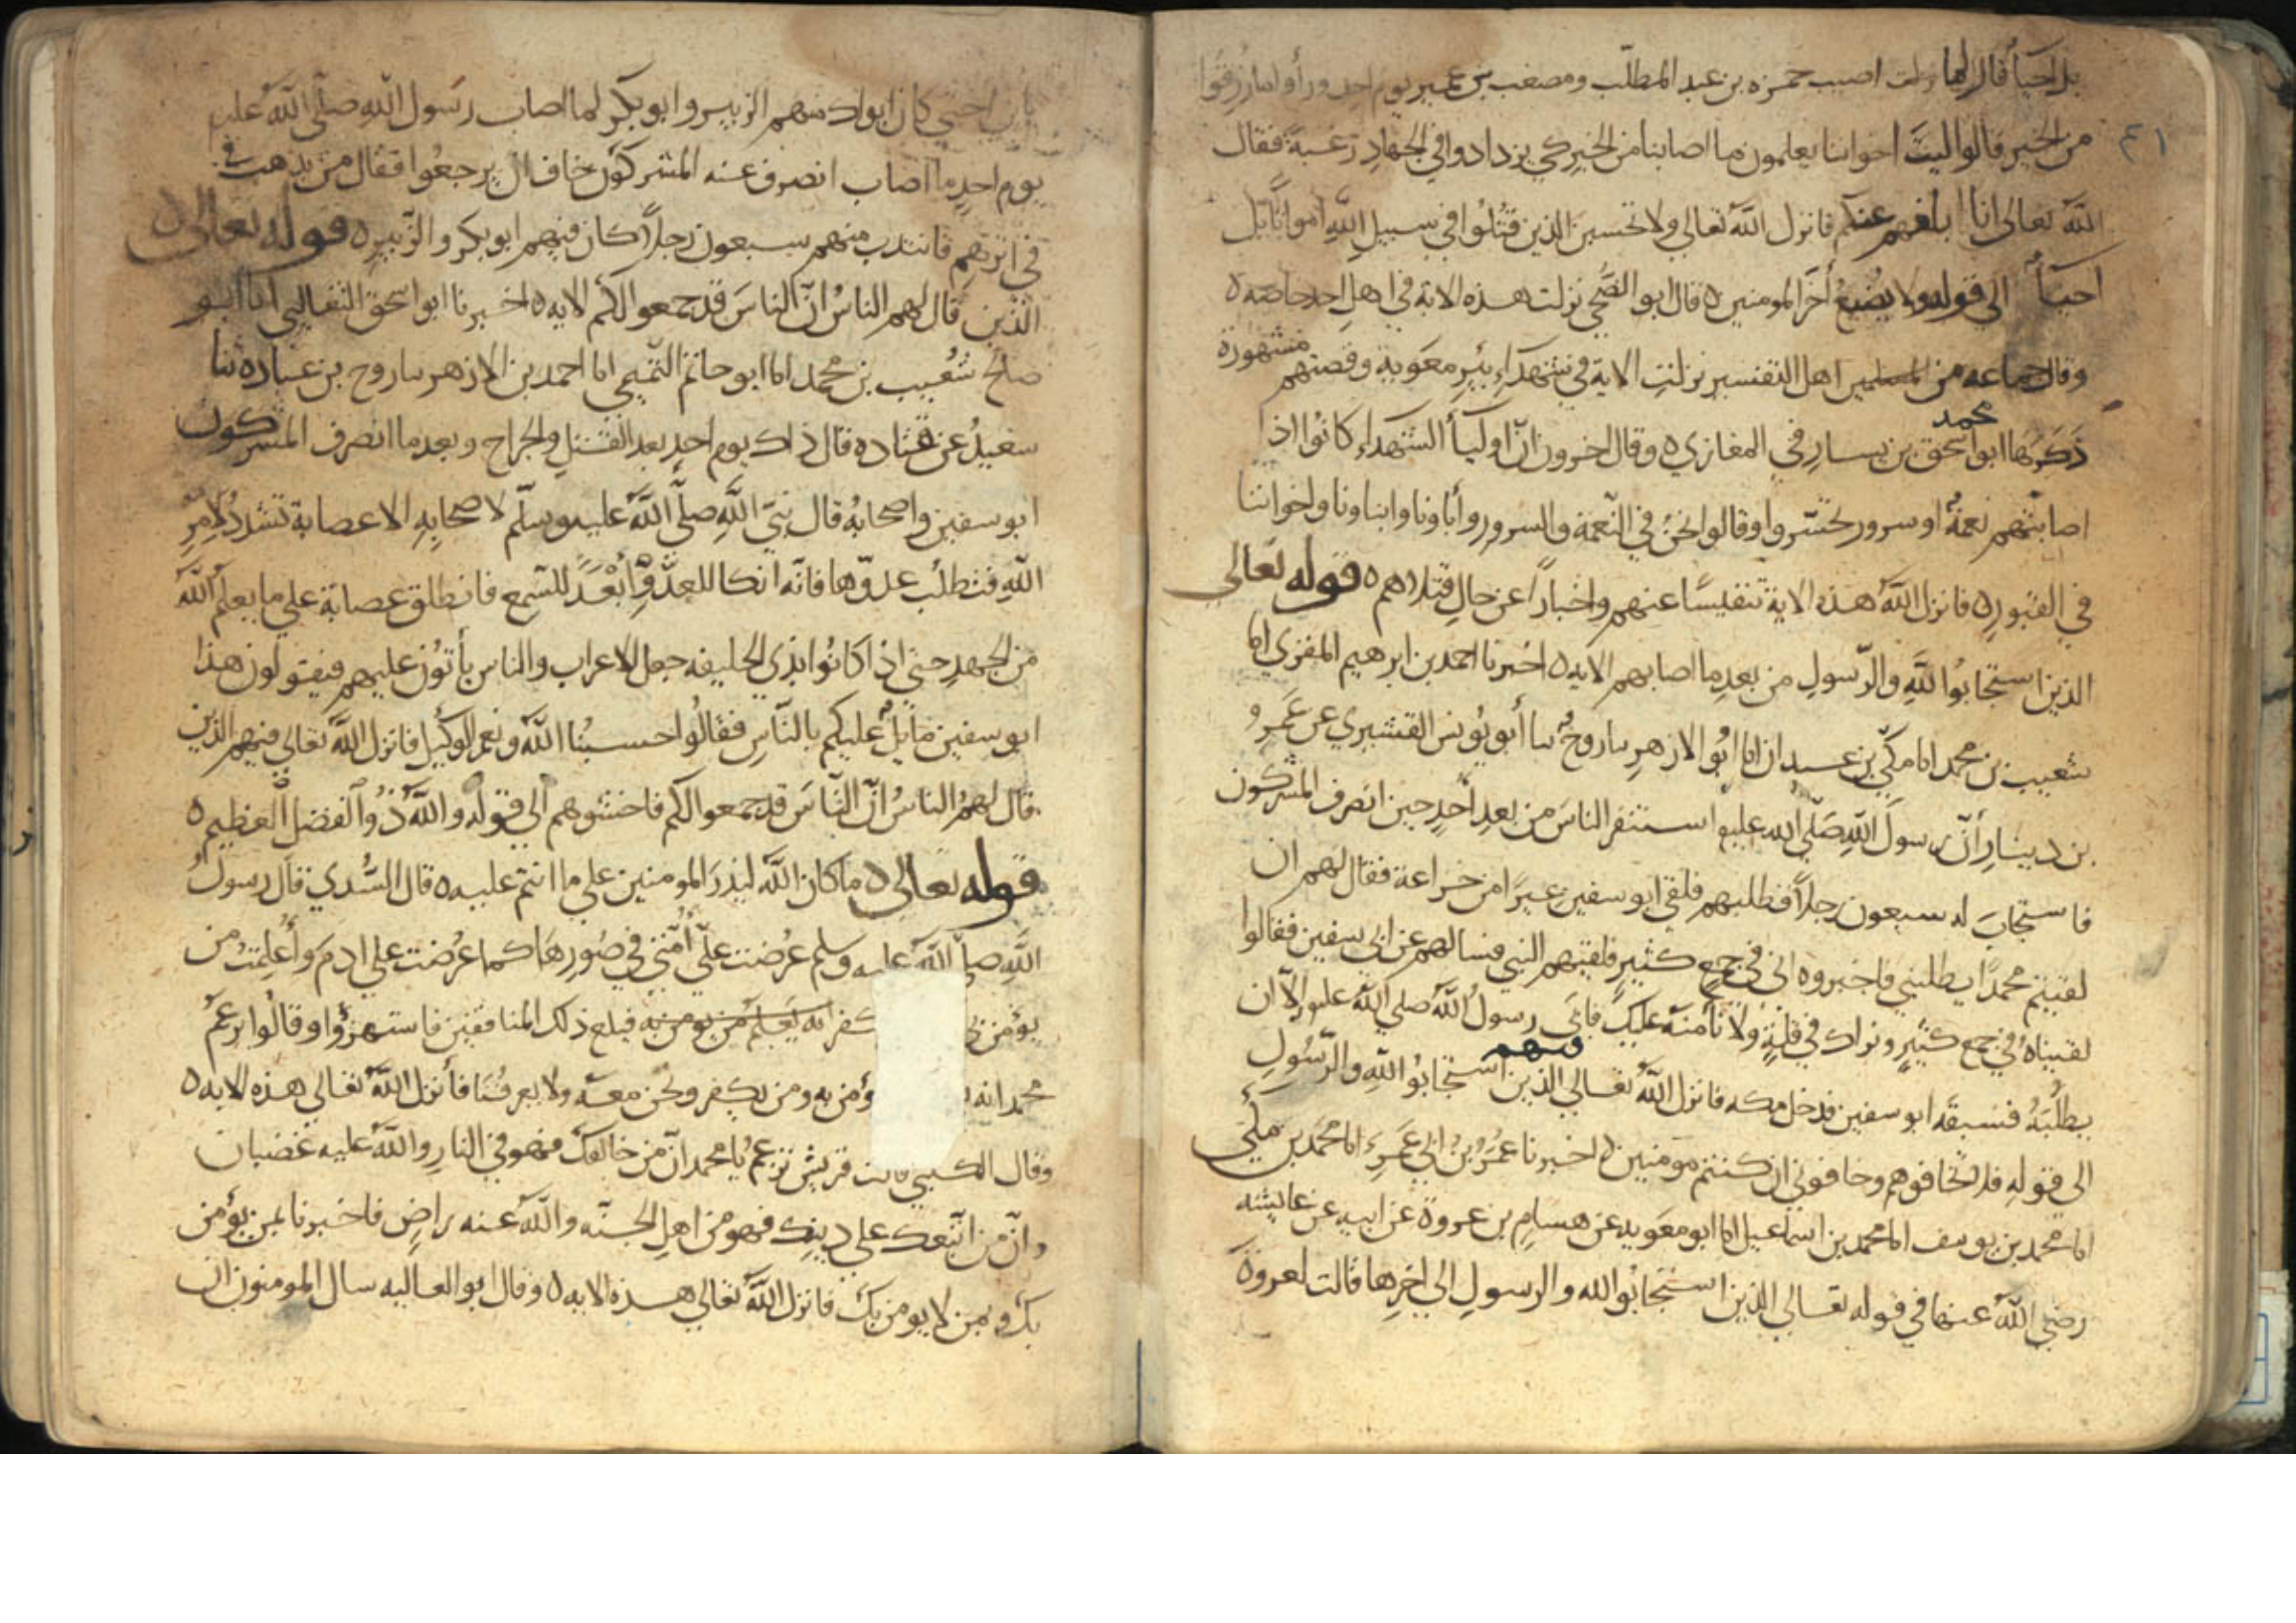 بل احيا قال لما اصيب حمزه بن عبد المطلب ومصعب بن عمير يوم احد ورأوا ما رزقوا
٤١
من الخير قالوا ليت اخواننا يعلمون ما اصابنا من الخير كي يزدادوا في الجهاد رغبة فقال
الله تعالى انا ابلغهم عنكم فانزل الله تعالي ولا تحسبن الذين قتلوا في سبيل الله امواتا بل
احيآ الى قوله لا يضيع أجر المومنين ٥ قال ابو الضحي نزلت هذه الاية في اهل احد خاصه ٥
وقال جماعه من اهل التفسير نزلت الاية في شهداء بئر معوية وقصتهم مشهورة
ذكرها ابو اسحق محمد بن يسار في المغازي ٥ وقال اخرون ان اوليآ الشهداء كانوا اذا
اصابتهم نعمة او سرور تحسروا وقالوا نحن في النعمة والسرور وأباونا وابناونا واخواننا
في القبور ٥ فانزل الله هذه الاية تنفيسا عنهم واخبارا عن حال قتلاهم ٥ قوله تعالي
الذين استجابوا لله والرسول من بعد ما اصابهم الايه ٥ اخبرنا احمد بن ابرهيم المقري انا
شعيب بن محمد انا مكي بن عبدان انا ابو الازهر نا روح نا أبو يونس القشيري عن عمرو
بن دينار أن رسول الله صلى الله عليه استنفر الناس من بعد أحد حين انصرف المشركون
فاستجاب له سبعون رجلا فطلبهم فلقي ابو سفين عيرا من خزاعة فقال لهم ان
لقيتم محمدا يطلبني فاخبروه اني في جمع كثير فلقيهم النبي فسالهم عن ابي سفين فقالوا
لقيناه في جمع كثير ونراك في قلة ولا نأمنه عليك فابى رسول الله صلى الله عليه إلا ان
يطلبه فسبقه ابو سفين فدخل مكه فانزل الله تعالي فيهم الذين استجابوا لله والرسول
الى قوله فلا تخافوهم وخافوني ان كنتم مومنين ٥ اخبرنا عمر بن ابي عمرو انا محمد بن مكي
انا محمد بن يوسف انا محمد بن اسماعيل انا ابو معويه عن هسام بن عروة عن ابيه عن عايشه
رضي الله عنها في قوله تعالي الذين استجابوا لله والرسول الى اخرها قالت لعروة
يابن اختي كان ابواك منهم الزبير وابو بكر لما اصاب رسول الله صلى الله عليه
يوم احد ما اصاب انصرف عنه المشركون خاف ان يرجعوا فقال من يذهب في
في اثرهم فانتدب منهم سبعون رجلا كان فيهم ابو بكر والزبير ٥ قوله تعالى ٥
الذين قال لهم الناس ان الناس قد جمعوا لكم الايه ٥ اخبرنا ابو اسحق الثعالبي انا ابو
صلح شعيب بن محمد انا ابو حاتم التميمي انا احمد بن الازهر نا روح بن عباده نا
سعيد عن قتاده قال ذاك يوم احد بعد القتل والجراح وبعد ما انصرف المشركون
ابو سفين واصحابه قال نبي الله صلى الله عليه وسلم لاصحابه الا عصابة تشدد لامر
الله فتطلب عدوها فانه انكا للعدو وابعد للسمع فانطلق عصابة علي ما يعلم الله
من الجهد حتي اذا كانوا بذي الحليفه جعل الاعراب والناس يأتون عليهم فيقولون هذا
ابو سفين مايل عليكم بالناس فقالوا حسبنا الله ونعم الوكيل فانزل الله تعالي فيهم الذين
قال لهم الناس ان الناس قد جمعوا لكم فاخشوهم الي قوله والله ذو الفضل العظيم ٥
قوله تعالى ٥ ما كان الله ليذر المومنين علي ما انتم عليه ٥ قال السدي قال رسول
الله صلى الله عليه وسلم عرضت علي أمتي في صورها كما عرضت علي ادم وأعلمت من
يؤمن فبلغ ذلك المنافقين فاستهزؤا وقالوا يزعم
محمد انه ؤمن به ومن يكفر ونحن معه ولا يعرفنا فأنزل الله تعالي هذه الايه ٥
وقال الكلبي قالت قريش تزعم يا محمد ان من خالفك فهو في النار والله عليه غضبان
وان من اتبعك علي دينك فهو من اهل الجنه والله عنه راض فاخبرنا بمن يؤمن
بك وبمن لا يومن بك فانزل الله تعالي هذه الايه ٥ وقال ابو العاليه سال المومنون ان